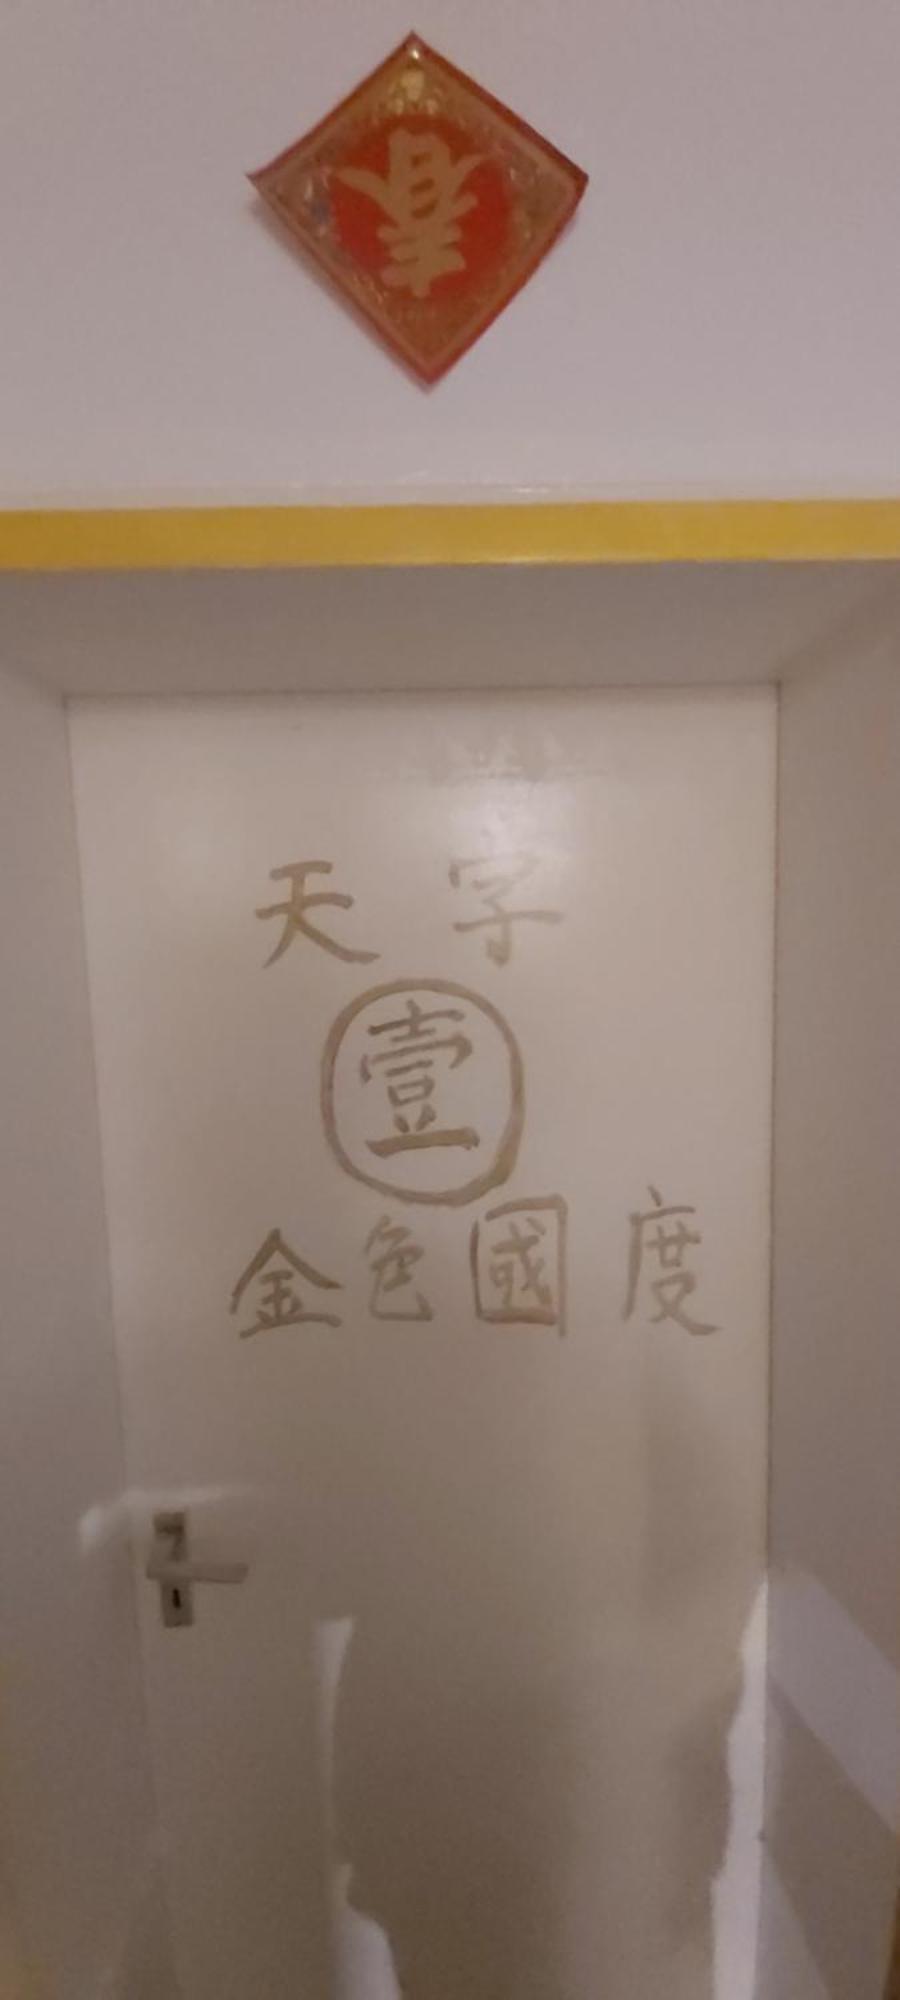 春
天字
壹
金色國度